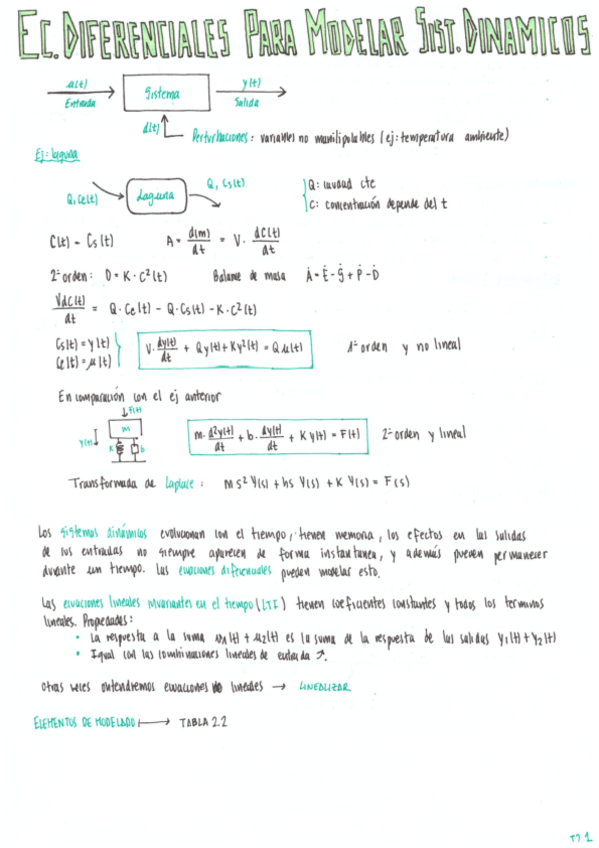 EC. DIFERENCIALES PARA MODELAR SIST. DINAMICOS
μ(t)
Entrada
Sistema
y(t)
Salida
d(t)
Perturbaciones: variables no manilipulables (ej: temperatura ambiente)
Ej: laguna
Q, Ce(t)
Laguna
Q, Cs(t)
Q: caudad cte
C: concentración depende del t
C(t) - Cs(t)
A = d(m)/dt = V · dC(t)/dt
2º orden: D = K · C²(t)
Balance de masa Ȧ = Ė - Ṡ + Ṗ - Ḋ
VdC(t)/dt = Q · Ce(t) - Q · Cs(t) - K · C²(t)
Cs(t) = y(t)
Ce(t) = μ(t)
V · dy(t)/dt + Qy(t) + Ky²(t) = Qμ(t)
1º orden y no lineal
En comparación con el ej anterior
F(t)
m
y(t)
K
b
m · d²y(t)/dt + b · dy(t)/dt + K y(t) = F(t)
2º orden y lineal
Transformada de Laplace: m s² Y(s) + bs Y(s) + K Y(s) = F(s)
Los sistemas dinámicos evolucionan con el tiempo, tienen memoria, los efectos en las salidas
de las entradas no siempre aparecen de forma instantanea, y además pueden permanecer
durante un tiempo. Las ecuaciones diferenciales pueden modelar esto.
Las ecuaciones lineales invariantes en el tiempo (LTI) tienen coeficientes constantes y todos los terminos
lineales. Propiedades:
• La respuesta a la suma μ1(t) + μ2(t) es la suma de la respuesta de las salidas y1(t) + y2(t)
• Igual con las combinaciones lineales de entrada ↗.
Otras veces obtendremos ecuaciones no lineales → LINEALIZAR
ELEMENTOS DE MODELADO ⟼ TABLA 2.2
T2 1